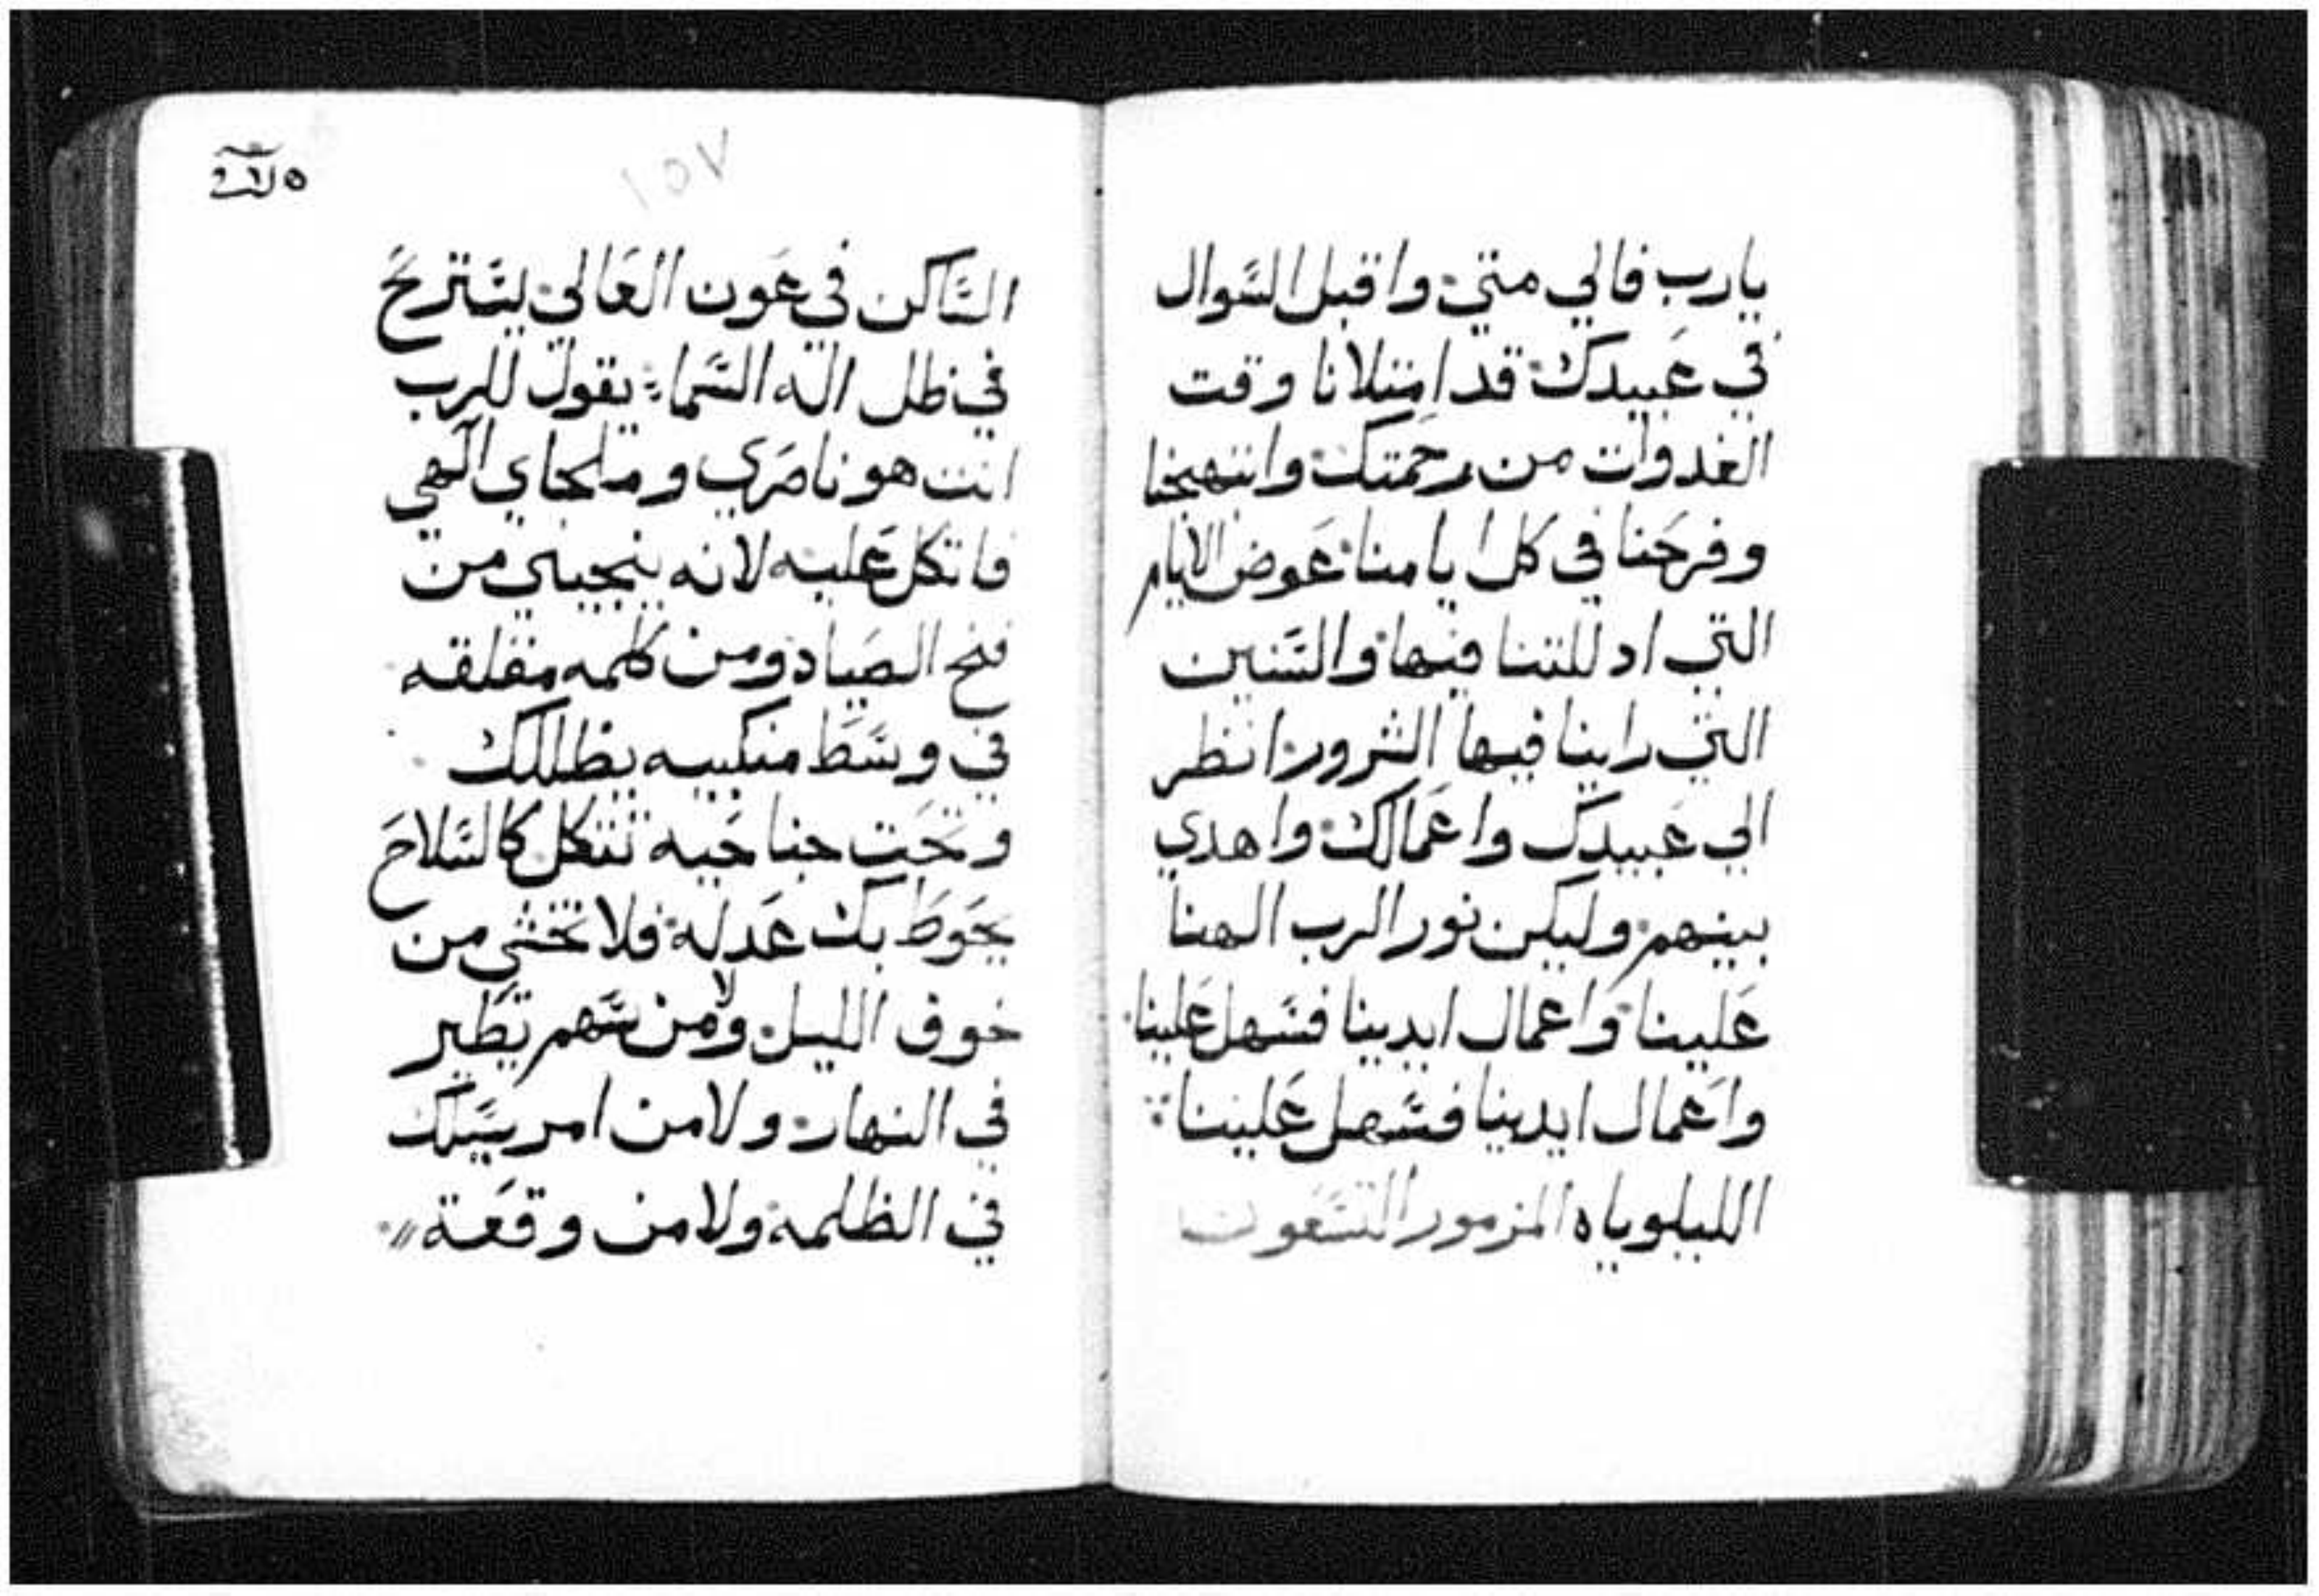 يارب فالي متي واقبل السوال
في عبيدك قد امتلانا وقت
الغدوات من رحمتك وابتهجنا
وفرحنا في كل ايامنا عوض الايام
التي ادللتنا فيها والسنين
التي راينا فيها الشرور انظر
الي عبيدك واعمالك واهدي
بينهم وليكن نور الرب الهنا
علينا واعمال ايدينا فسهل علينا
واعمال ايدينا فسهل علينا
الليلوياه المزمور التسعون
١٥٧
الساكن في عون العالي ليستريح
في ظل اله السماء يقول للرب
انت هو ناصري وملجاي الهي
فاتكل عليه لانه ينجيني من
فخ الصياد ومن كلمه مقلقه
في وسط منكبيه يظللك
وتحت جناحيه تتكل كالسلاح
يحوط بك عدله فلا تخشي من
خوف الليل ولا من سهم يطير
في النهار ولا من امر يسلك
في الظلمه ولا من وقعة